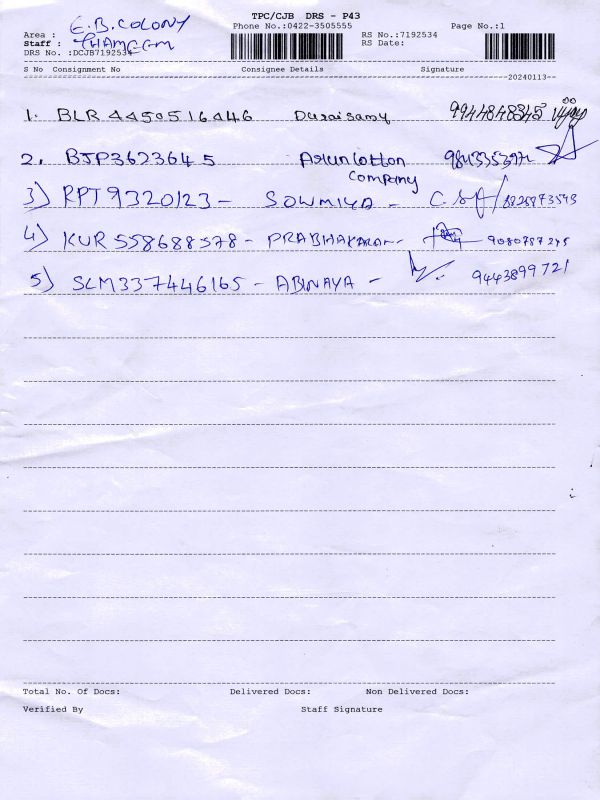 TPC/CJB DRS - P43
E.B.COLONY
Phone No.:0422-3505555 Page No.:1
Area :
Staff : THAMEEM
RS No.:7192534
RS Date:
DRS No. :DCJB7192534
S No Consignment No Consignee Details Signature
20240113
1. BLR 4450516446 Duraisamy 9944848845
2. BJP3623645 Arun Cotton
Company
3) RPT9320123 - SOWMIYA - 8825873543
4) KUR 558688578 - PRABHAKARAN - 9080787245
5) SLM337446165 - ABINAYA - 9443899721
Total No. Of Docs: Delivered Docs: Non Delivered Docs:
Verified By Staff Signature